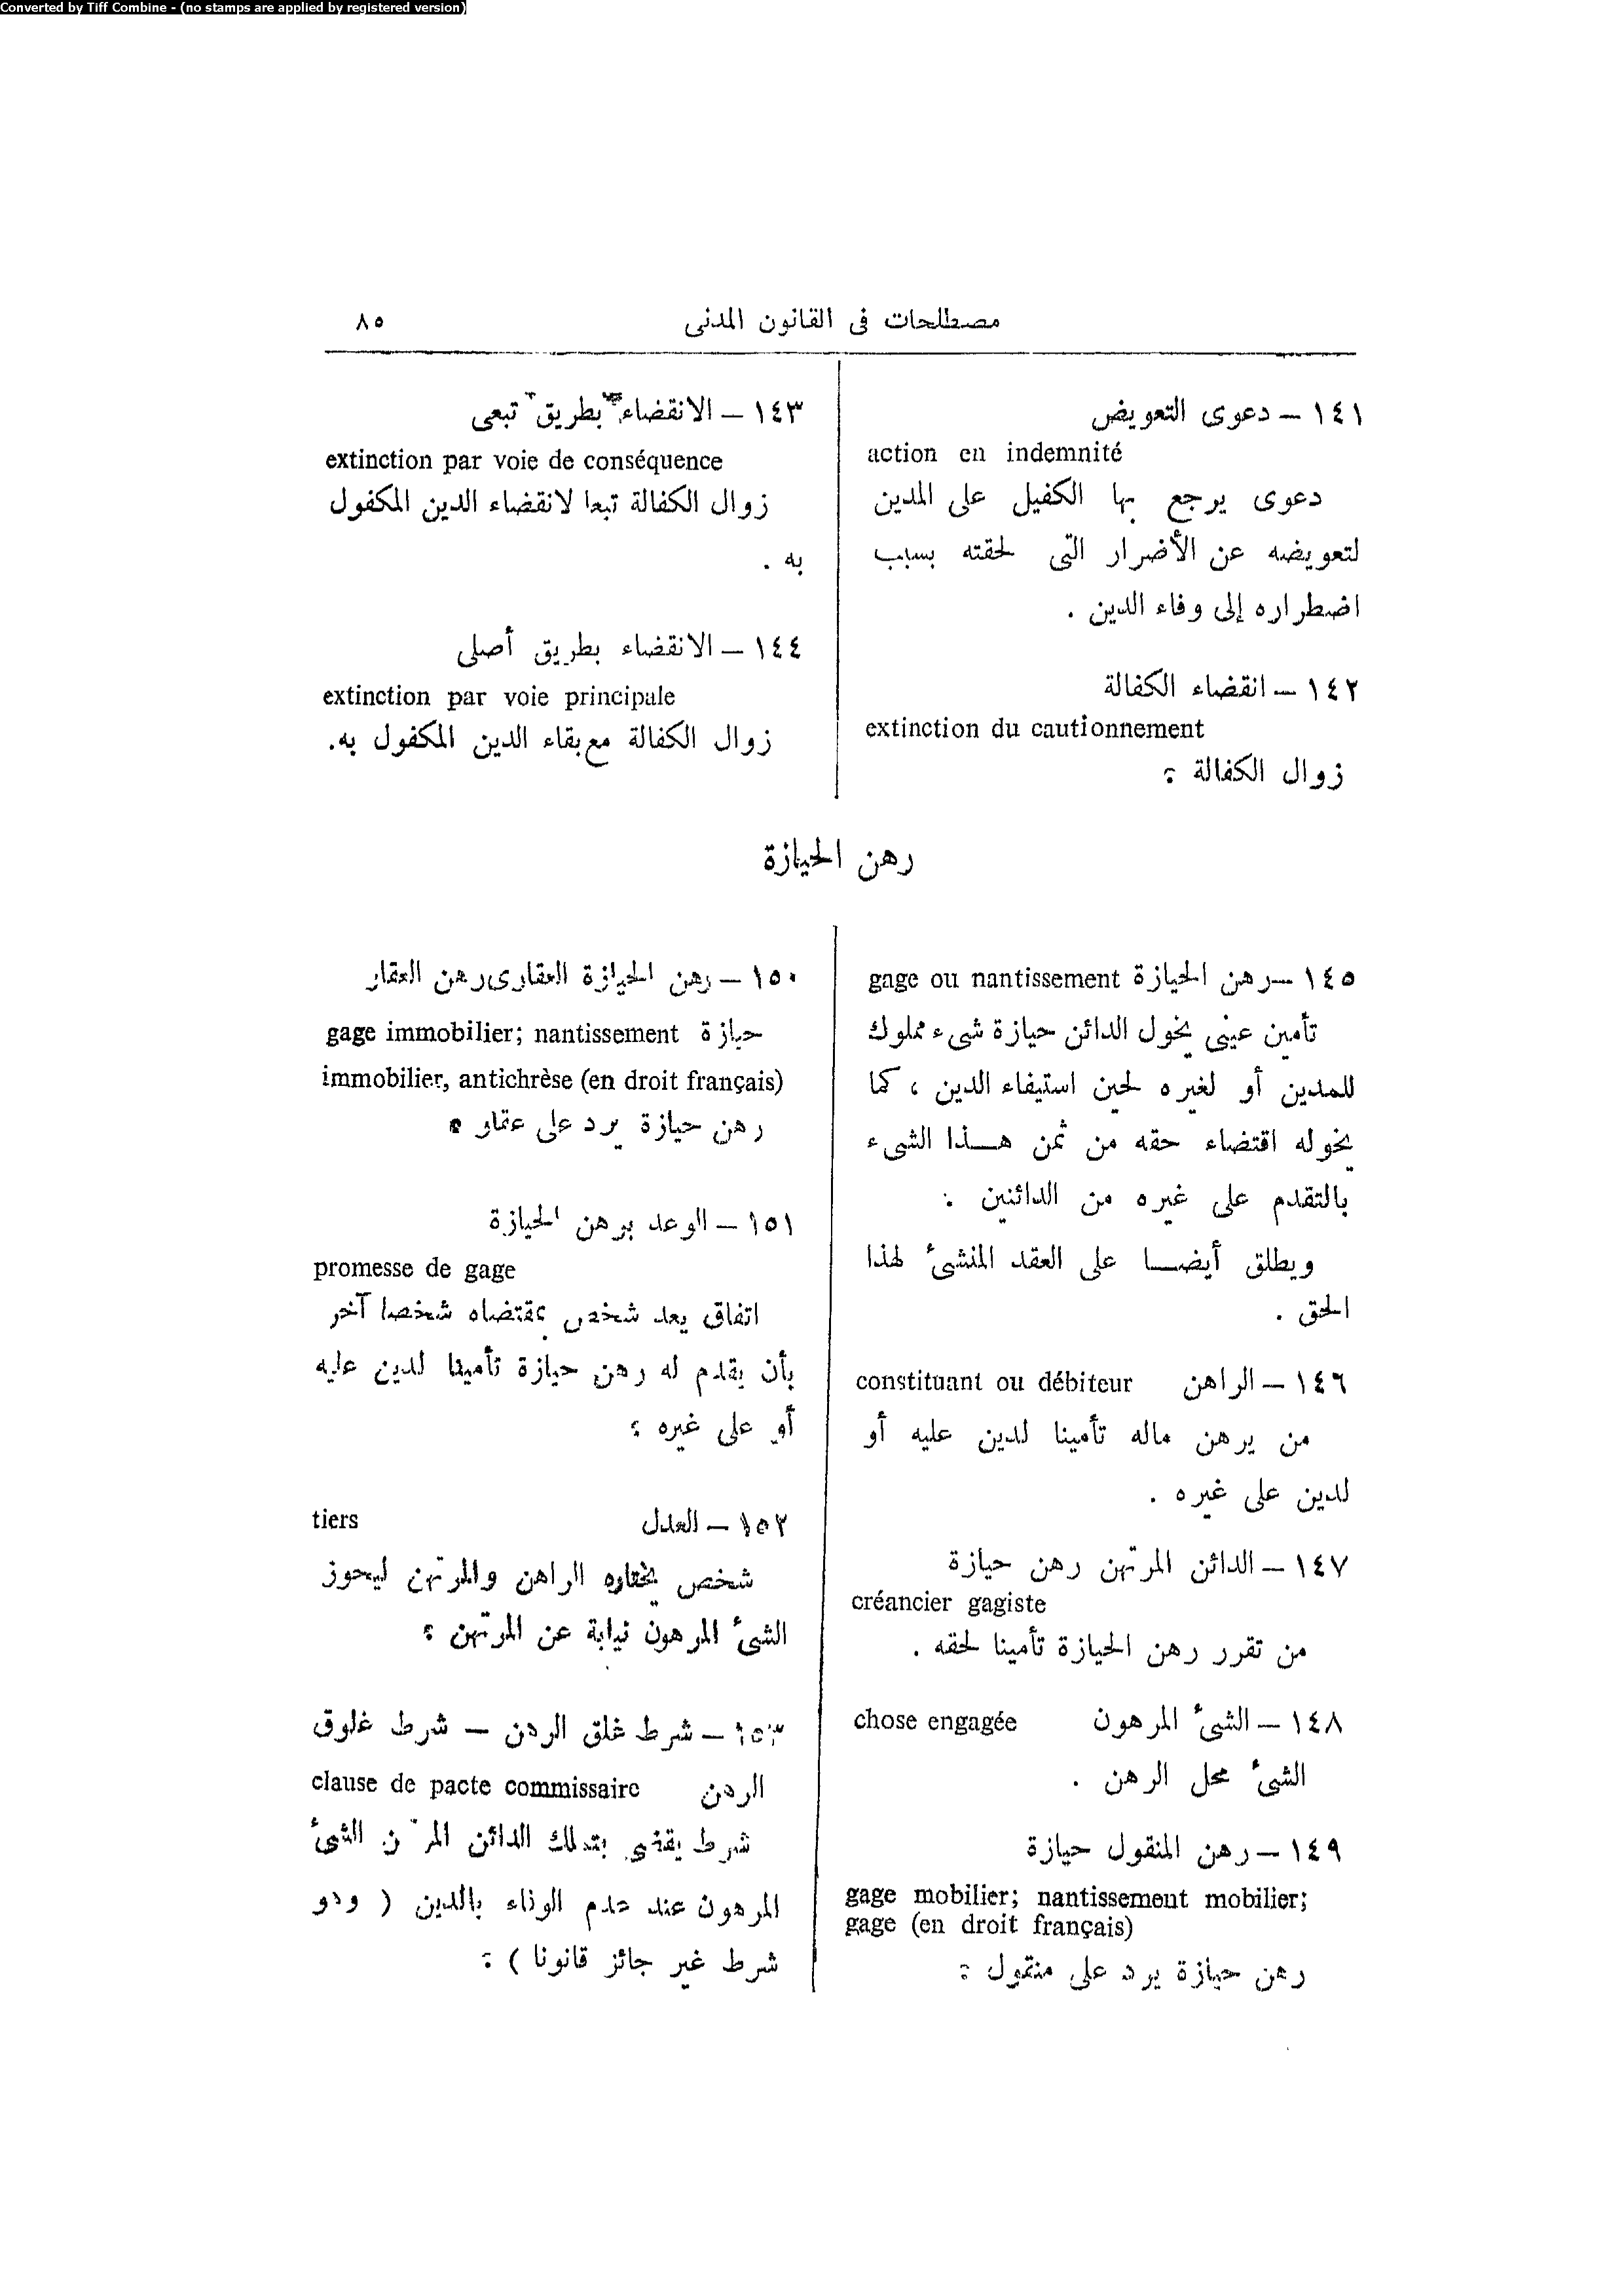 Converted by Tiff Combine - (no stamps are applied by registered version)
مصطلحات فى القانون المدنى
٨٥
١٤١ – دعوى التعويض
action en indemnité
دعوى يرجع بها الكفيل على المدين
لتعويضه عن الأضرار التى لحقته بسبب
اضطراره إلى وفاء الدين .
١٤٢ – انقضاء الكفالة
extinction du cautionnement
زوال الكفالة :
١٤٣ – الانقضاء بطريق تبعى
extinction par voie de conséquence
زوال الكفالة تبعا لانقضاء الدين المكفول
به .
١٤٤ – الانقضاء بطريق أصلى
extinction par voie principale
زوال الكفالة مع بقاء الدين المكفول به.
رهن الحيازة
١٤٥ – رهن الحيازة gage ou nantissement
تأمين عينى يخول الدائن حيازة شىء مملوك
للمدين أو لغيره لحين استيفاء الدين ، كما
يخوله اقتضاء حقه من ثمن هذا الشىء
بالتقدم على غيره من الدائنين :
ويطلق أيضا على العقد المنشىء لهذا
الحق .
١٤٦ – الراهن constituant ou débiteur
من يرهن ماله تأمينا لدين عليه أو
لدين على غيره .
١٤٧ – الدائن المرتهن رهن حيازة
créancier gagiste
من تقرر رهن الحيازة تأمينا لحقه .
١٤٨ – الشىء المرهون chose engagée
الشىء محل الرهن .
١٤٩ – رهن المنقول حيازة
gage mobilier; nantissement mobilier;
gage (en droit français)
رهن حيازة يرد على منقول :
١٥٠ – رهن الحيازة العقارى رهن العقار
حيازة gage immobilier; nantissement
immobilier, antichrèse (en droit français)
رهن حيازة يرد على عقار .
١٥١ – الوعد برهن الحيازة
promesse de gage
اتفاق يعد شخص بمقتضاه شخصا آخر
بأن يقدم له رهن حيازة تأمينا لدين عليه
أو على غيره :
١٥٢ – العدل tiers
شخص يختاره الراهن والمرتهن ليحوز
الشىء المرهون نيابة عن المرتهن :
١٥٣ – شرط غلق الرهن – شرط غلوق
الرهن clause de pacte commissaire
شرط يقضى بتملك الدائن المرتهن الشىء
المرهون عند عدم الوفاء بالدين ( وهو
شرط غير جائز قانونا ) :